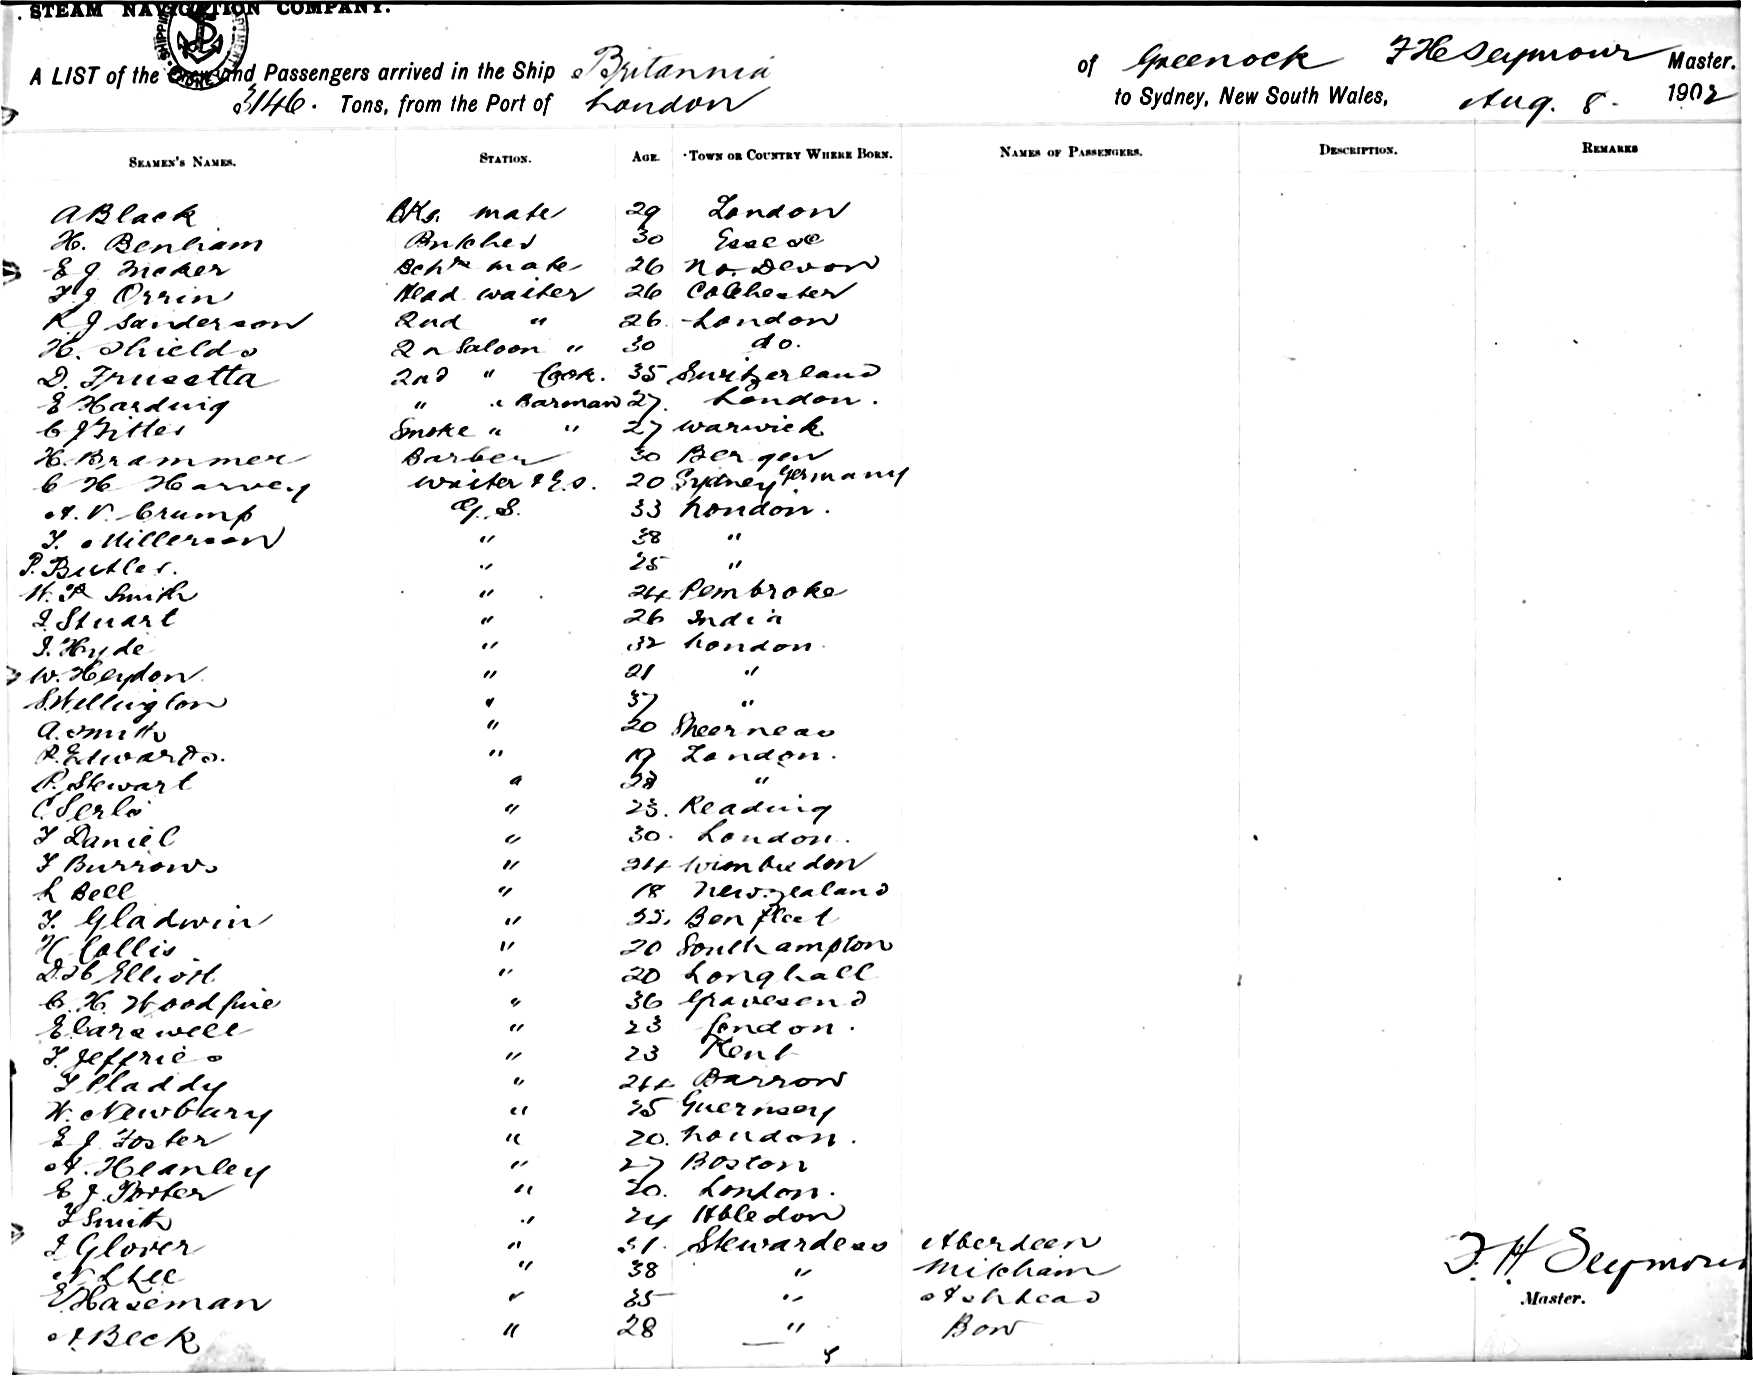 STEAM NAVIGATION COMPANY.
A LIST of the Crew and Passengers arrived in the Ship Britannia of Greenock F H Seymour Master.
3146. Tons, from the Port of London to Sydney, New South Wales, Aug. 8. 1902
SEAMEN'S NAMES. STATION. AGE. TOWN OR COUNTRY WHERE BORN. NAMES OF PASSENGERS. DESCRIPTION. REMARKS
A Black Bks. mate 29 London
H. Benham Butcher 30 Essex
E J Bchrs mate 26 No. Devon
F J Orrin Head waiter 26 Colchester
R J Sanderson 2nd " 26 London
H. Shields 2n Saloon " 30 do.
D. Trusetta 2nd " Cook. 35 Switzerland
E Harding " " Barman 27. London.
C J Smoke " " 27 Warwick
H. Brammer Barber 30 Bergen
C H Harvey Waiter & G.S. 20 Sydney Germany
A. V. Crump G. S. 33 London.
F. Millerson " 38 "
P. Butler. " 25 "
W. P. Smith " 24 Pembroke
J. Stuart " 26 India
J. Hyde " 32 London.
W. Heydon. " 21 "
S. Wellington " 37 "
A. Smith " 20 Sheerness
R. Edwards. " 19 London.
P. Stewart " 28 "
C. " 23. Reading
F Daniel " 30. London.
F Burrows " 24 Wimbledon
L Bell " 18 New Zealand
F. Gladwin " 33. Benfleet
H Collis " 20 Southampton
D. H Elliott " 20 Longhall
C. H. Woodfine " 36 Gravesend
E Carswell " 23 London.
F. Jeffries " 23 Kent
F " 24 Barrow
W. Newbary " 25 Guernsey
E J Foster " 20. London.
A. Heanley " 27 Boston
E J. Porter " 20. London.
F Smith " 24
J Glover " 31. Stewardess Aberdeen
N. L Lee " 38 " Mitcham
E. Haseman " 35 " Ashtead
A. Beck " 28 " Bow
F. H. Seymour
Master.